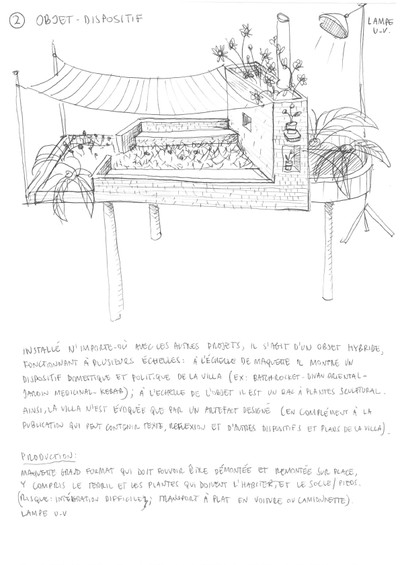 2 OBJET-DISPOSITIF
LAMPE
U.V.
INSTALLÉ N'IMPORTE-OÙ AVEC LES AUTRES PROJETS, IL S'AGIT D'UN OBJET HYBRIDE,
FONCTIONNANT À PLUSIEURS ÉCHELLES: À L'ÉCHELLE DE MAQUETTE IL MONTRE UN
DISPOSITIF DOMESTIQUE ET POLITIQUE DE LA VILLA (EX: BATCHROCKET-DIVAN ORIENTAL-
JARDIN MEDICINAL-KEBAB); À L'ÉCHELLE DE L'OBJET IL EST UN BAC À PLANTES SCULPTURAL.
AINSI, LA VILLA N'EST ÉVOQUÉE QUE PAR UN ARTEFACT DESIGNÉ (EN COMPLÉMENT À LA
PUBLICATION QUI PEUT CONTENIR TEXTE, RÉFLEXION ET D'AUTRES DISPOSITIFS ET PLANS DE LA VILLA).
PRODUCTION:
MAQUETTE GRAND FORMAT QUI DOIT POUVOIR ÊTRE DÉMONTÉE ET REMONTÉE SUR PLACE,
Y COMPRIS LE TERRIL ET LES PLANTES QUI DOIVENT L'HABITER, ET LE SOCLE/PIEDS.
(RISQUE: INTÉGRATION DIFFICILE; TRANSPORT À PLAT EN VOITURE OU CAMIONNETTE).
LAMPE U.V.